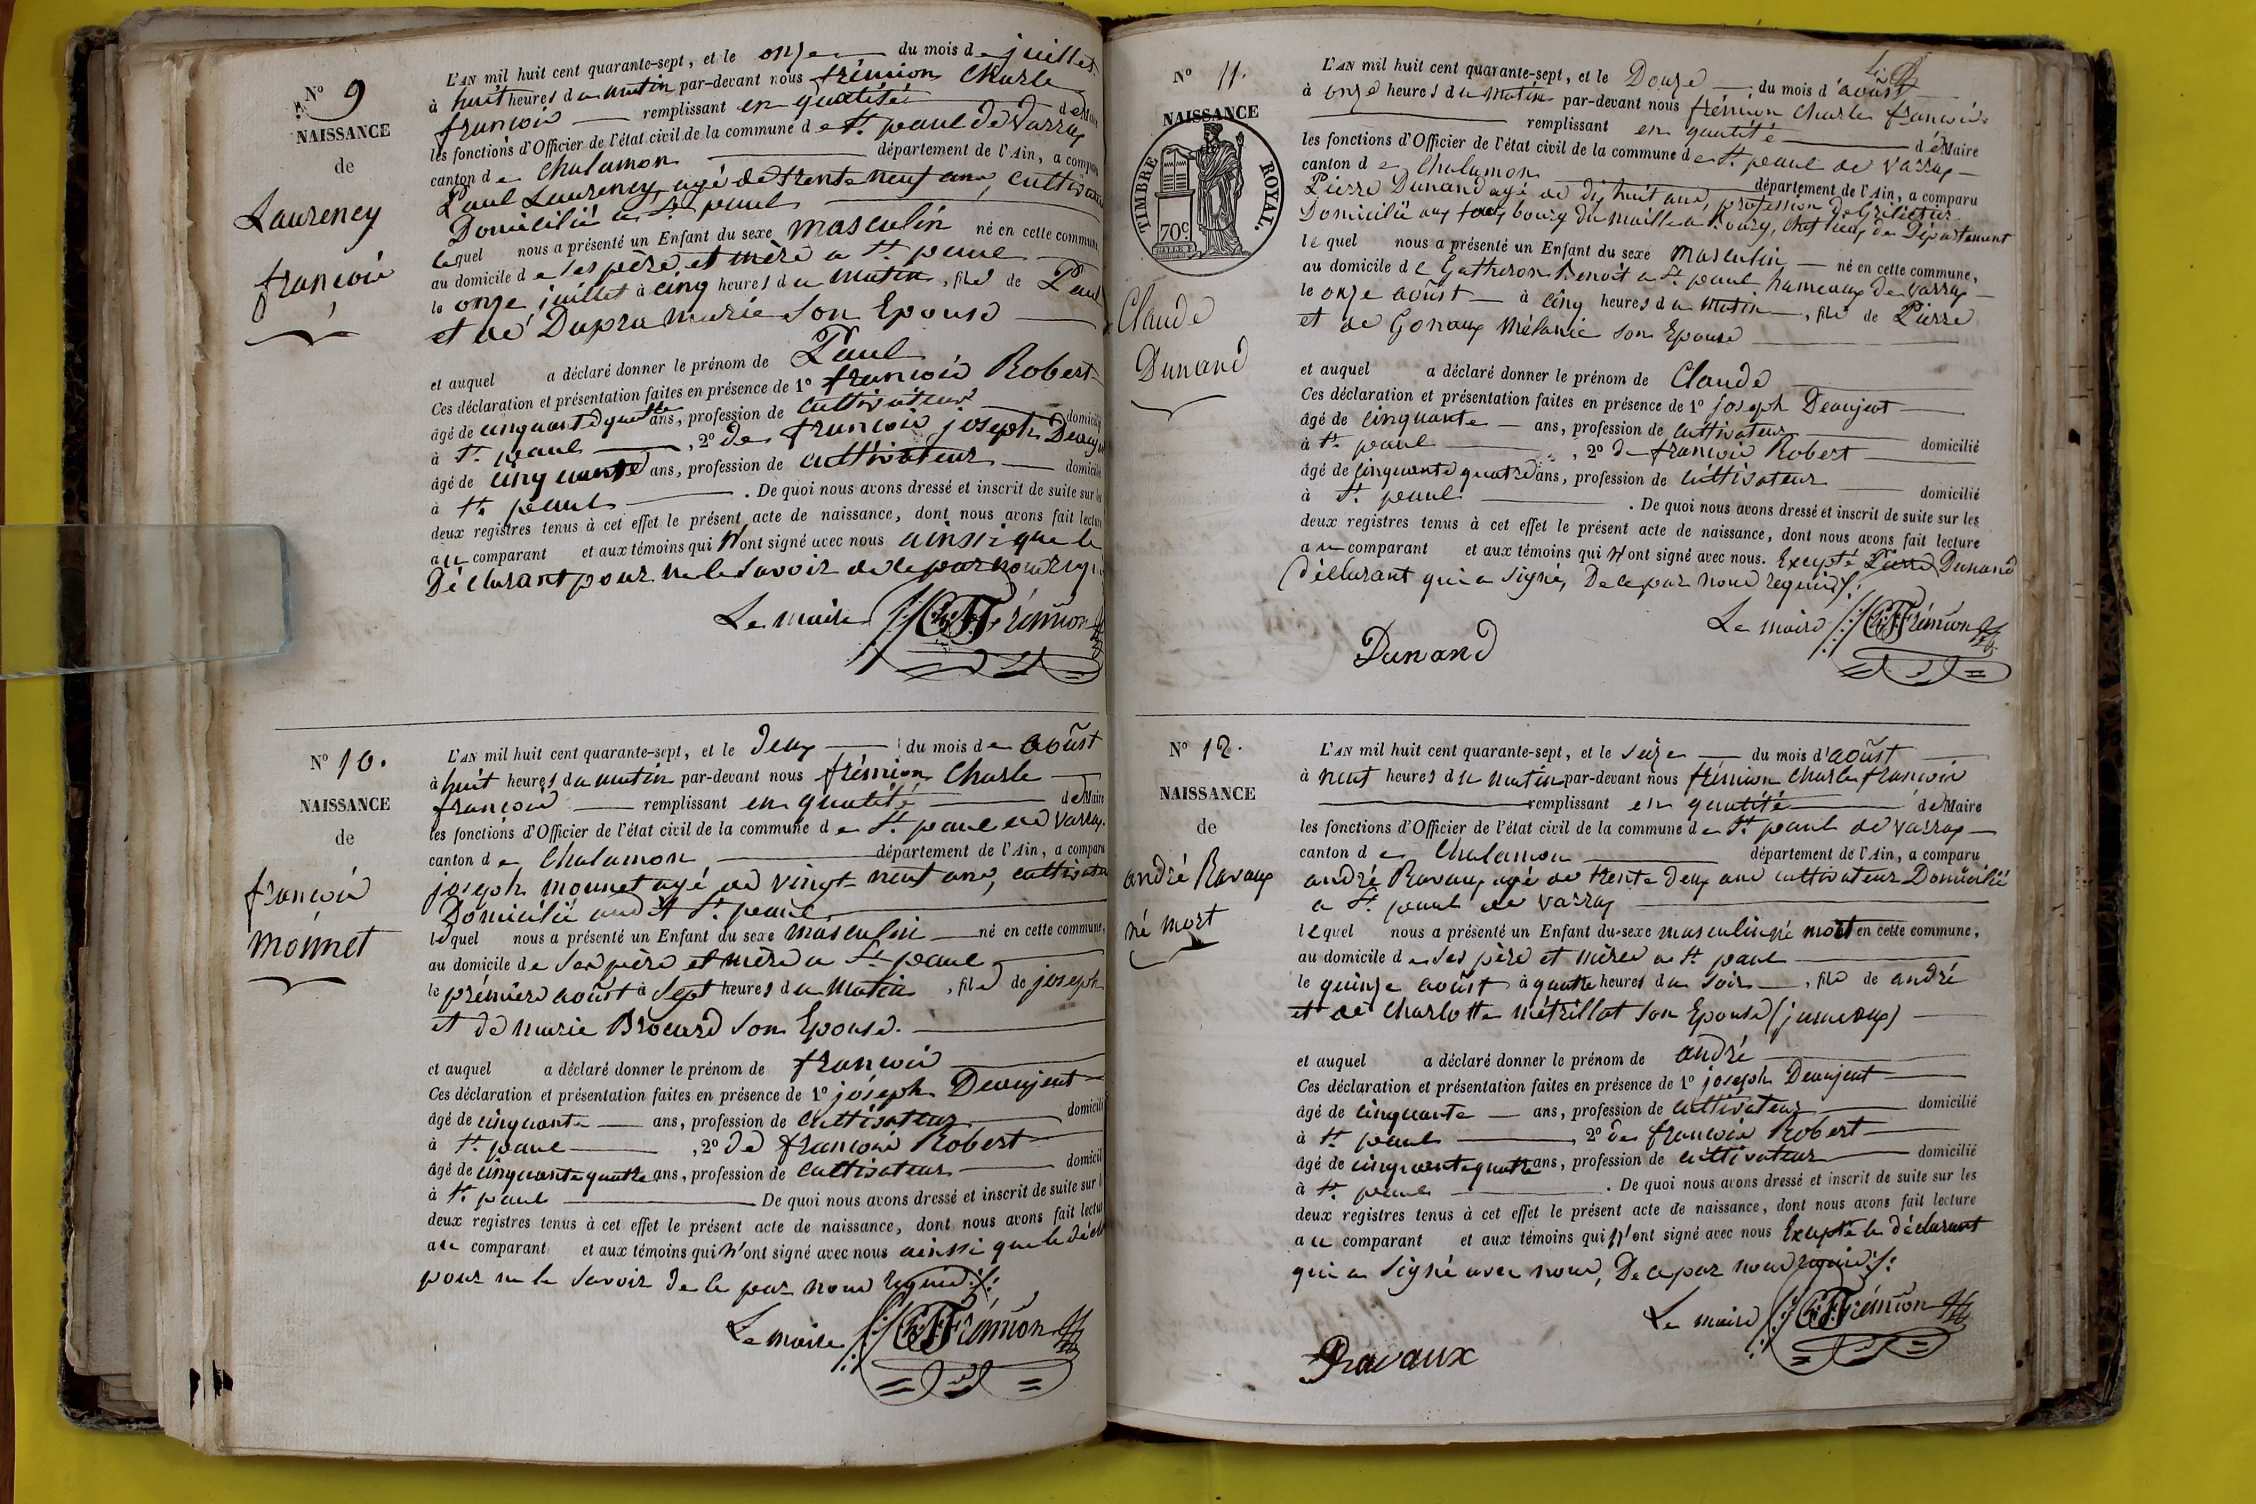 N° 9
NAISSANCE
de
Laurency
françois
L'AN mil huit cent quarante-sept, et le onze du mois de juillet
à huit heures du matin par-devant nous frémion Charle
françois remplissant en qualité de Maire
les fonctions d'Officier de l'état civil de la commune de St. paul de Varax
canton de Chalamon département de l'Ain, a comparu
Paul Laurency, agé de trente neuf ans, cultivateur
Domicilié a St. paul
lequel nous a présenté un Enfant du sexe masculin né en cette commune
au domicile de ses père et mère a St. paul
le onze juillet à cinq heures du matin, fils de Paul
et de Dupra marie son Epouse
et auquel a déclaré donner le prénom de Paul
Ces déclaration et présentation faites en présence de 1° françois Robert
âgé de cinquante quatre ans, profession de cultivateur domicilié
à St. paul, 2° de françois joseph
âgé de cinquante ans, profession de cultivateur domicilié
à St. paul. De quoi nous avons dressé et inscrit de suite sur les
deux registres tenus à cet effet le présent acte de naissance, dont nous avons fait lecture
au comparant et aux témoins qui n'ont signé avec nous ainsi que le
Déclarant pour ne le savoir de ce par nous requis
Le maire Ch. F. Frémion
N° 10.
NAISSANCE
de
françois
monnet
L'AN mil huit cent quarante-sept, et le deux du mois de août
à huit heures du matin par-devant nous frémion Charle
françois remplissant en qualité de Maire
les fonctions d'Officier de l'état civil de la commune de St. paul de Varax
canton de Chalamon département de l'Ain, a comparu
joseph monnet agé de vingt neuf ans, cultivateur
Domicilié audit St. paul
lequel nous a présenté un Enfant du sexe masculin né en cette commune,
au domicile de ses père et mère a St. paul
le première août à sept heures du matin, fils de joseph
et de marie Brocard son Epouse.
et auquel a déclaré donner le prénom de françois
Ces déclaration et présentation faites en présence de 1° joseph Deaujeut
âgé de cinquante ans, profession de cultivateur domicilié
à St. paul, 2° de françois Robert
âgé de cinquante quatre ans, profession de cultivateur domicil
à St. paul De quoi nous avons dressé et inscrit de suite sur l
deux registres tenus à cet effet le présent acte de naissance, dont nous avons fait lectur
au comparant et aux témoins qui n'ont signé avec nous ainssi que le décla
pour ne le savoir de ce par nous requis
Le maire Ch. F. Frémion
N° 11.
NAISSANCE
TIMBRE ROYAL.
70c
Claude
Dunand
L'AN mil huit cent quarante-sept, et le Douze du mois d'août
à onze heures du matin par-devant nous frémion Charle françois
remplissant en qualité de Maire
les fonctions d'Officier de l'état civil de la commune de St. paul de varax
canton de Chalamon département de l'Ain, a comparu
Pierre Dunand agé de dix huit ans, profession de
Domicilié aux foux bourg du maille a Bourg, chef lieux du Département
lequel nous a présenté un Enfant du sexe masculin né en cette commune,
au domicile de Gatheron Benoit a St. paul hameaux de varax
le onze août à cinq heures du matin, fils de Pierre
et de Gonaux Mélanie son Epouse
et auquel a déclaré donner le prénom de Claude
Ces déclaration et présentation faites en présence de 1° joseph Deaujeut
âgé de cinquante ans, profession de cultivateur
à St. paul, 2° de françois Robert domicilié
âgé de cinquante quatre ans, profession de cultivateur
à St. paul domicilié
. De quoi nous avons dressé et inscrit de suite sur les
deux registres tenus à cet effet le présent acte de naissance, dont nous avons fait lecture
au comparant et aux témoins qui n'ont signé avec nous. Excepté Pierre Dunand
Déclarant qui a signé, De ce par nous requis
Le maire Ch. F. Frémion
Dunand
N° 12.
NAISSANCE
de
andré Ravaux
né mort
L'AN mil huit cent quarante-sept, et le seize du mois d'août
à neuf heures du matin par-devant nous frémion Charle françois
remplissant en qualité de Maire
les fonctions d'Officier de l'état civil de la commune de St. paul de varax
canton de Chalamon département de l'Ain, a comparu
andré Ravaux agé de trente deux ans cultivateur Domicilié
a St. paul de varax
lequel nous a présenté un Enfant du sexe masculin né mort en cette commune,
au domicile de ses père et mère a St. paul
le quinze août à quatre heures du soir, fils de andré
et de charlotte métrillat son Epouse (jumeaux)
et auquel a déclaré donner le prénom de andré
Ces déclaration et présentation faites en présence de 1° joseph Deaujeut
âgé de cinquante ans, profession de cultivateur domicilié
à St. paul, 2° de françois Robert
âgé de cinquante quatre ans, profession de cultivateur domicilié
à St. paul. De quoi nous avons dressé et inscrit de suite sur les
deux registres tenus à cet effet le présent acte de naissance, dont nous avons fait lecture
au comparant et aux témoins qui n'ont signé avec nous Excepté le déclarant
qui a signé avec nous, De ce par nous requis
Le maire Ch. F. Frémion
Ravaux